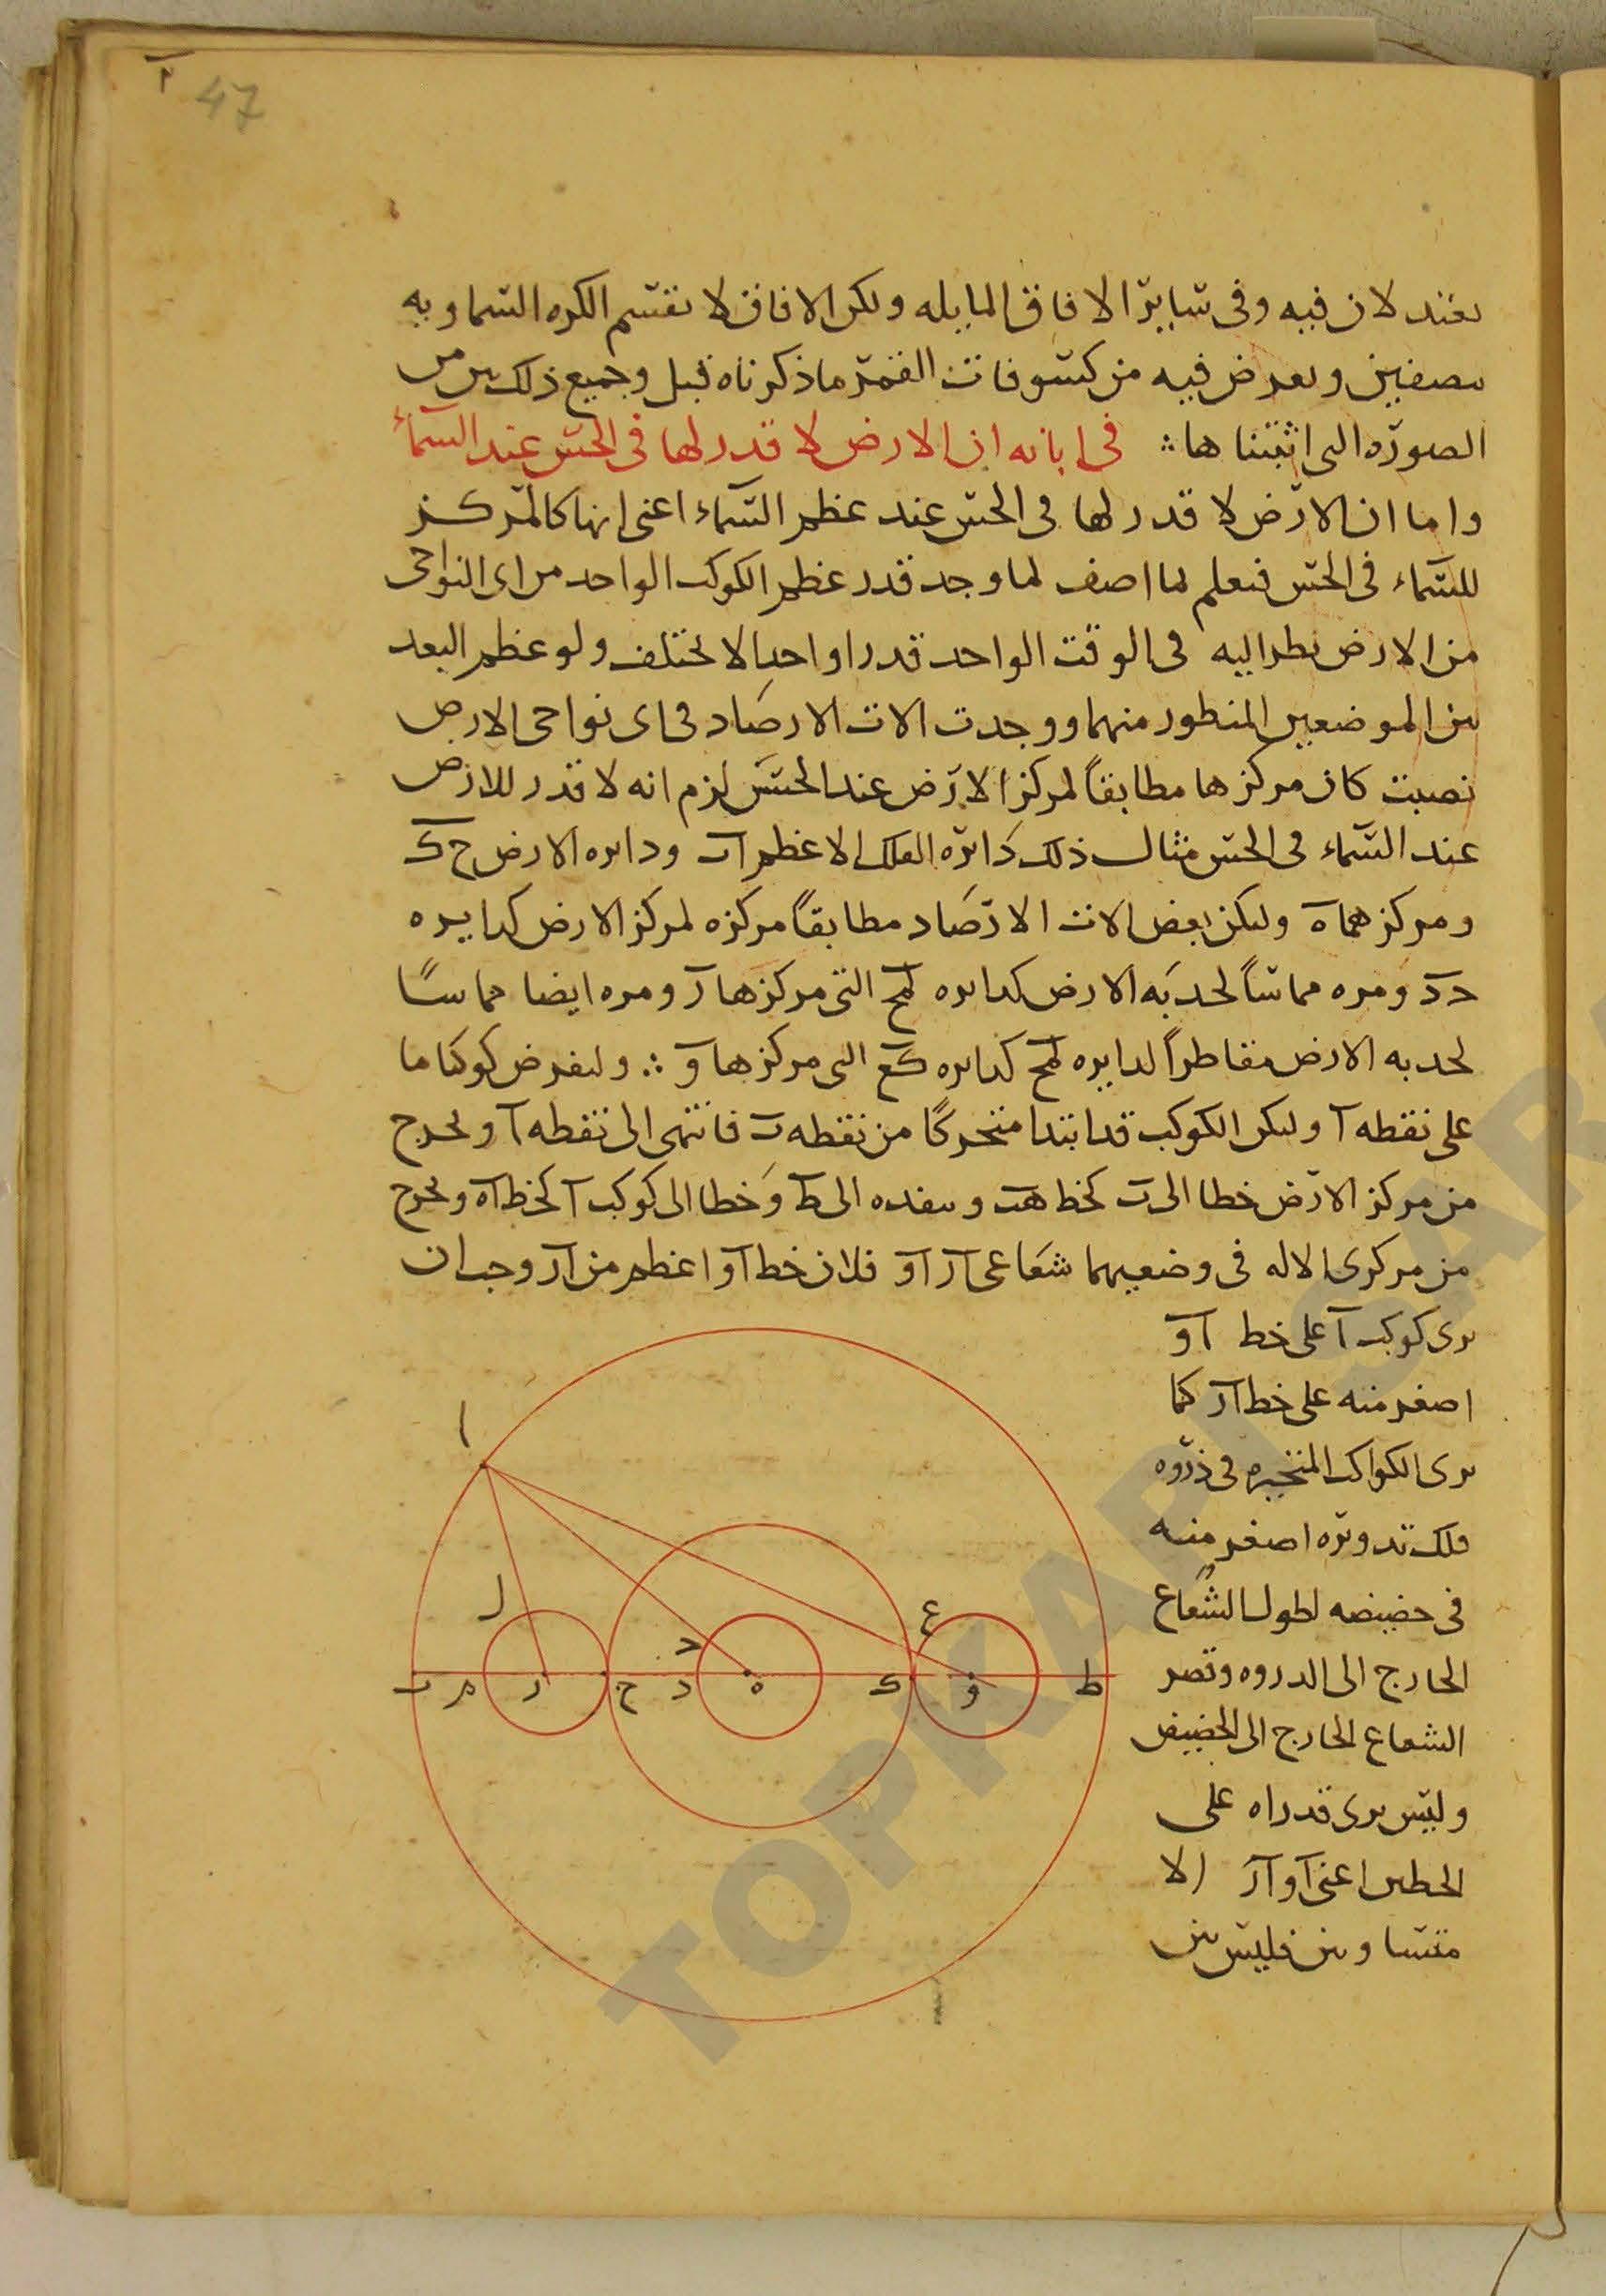 47
نفند لان فيه وفى ساير الافاق المايله ولكن الافاق لا تقسم الكره السماويه
بنصفين ويعرض فيه من كسوفات القمر ما ذكرناه قبل وجميع ذلك بين من
الصوره التى اثبتناها ؞ فى ابانه ان الارض لا قدر لها فى الحس عند السماء
واما ان الارض لا قدر لها فى الحس عند عظم السماء اعنى انها كالمركز
للسماء فى الحس فنعلم لما اصف لما وجد قدر عظم الكوكب الواحد من اى النواحى
من الارض نظر اليه فى الوقت الواحد قدرا واحدا لا يختلف ولو عظم البعد
بين الموضعين المنظور منهما ووجدت الات الارصاد فى اى نواحى الارض
نصبت كان مركزها مطابقاً لمركز الارض عند الحس لزم انه لا قدر للارض
عند السماء فى الحس مثال ذلك دايره الفلك الاعظم اب ودايره الارض ح ك
ومركزهما ه وليكن بعض الات الارصاد مطابقاً مركزه لمركز الارض كدايره
د د ومره مماساً لحدبه الارض كدايره لمح التى مركزها ر ومره ايضا مماسًا
لحدبه الارض مقاطراً لدايره لمح كدايره كع التى مركزها و ؞ ولنفرض كوكبا ما
على نقطه ا وليكن الكوكب قد ابتدا متحركًا من نقطه ب فانتهى الى نقطه ا ونخرج
من مركز الارض خطا الى ب كخط هب وننفده الى ط وخطا الى كوكب ا كخط اه ونخرج
من مركزى الاله فى وضعيهما شعاعى ار او فلان خط او اعظم من ار وجب ان
يرى كوكب ا على خط او
اصغر منه على خط ار كما
يرى الكواكب المتحيره فى ذروه
فلك تدويره اصغر منه
فى حضيضه لطول الشعاع
الخارج الى الدروه وقصر
الشعاع الخارج الى الحضيض
وليس يرى قدراه على
الخطين اعنى او ار الا
متساويين فليس بين
ا
ل
ع
د
ب
م
ر
ح
د
ه
ك
و
ط
TOPKAPI SARA